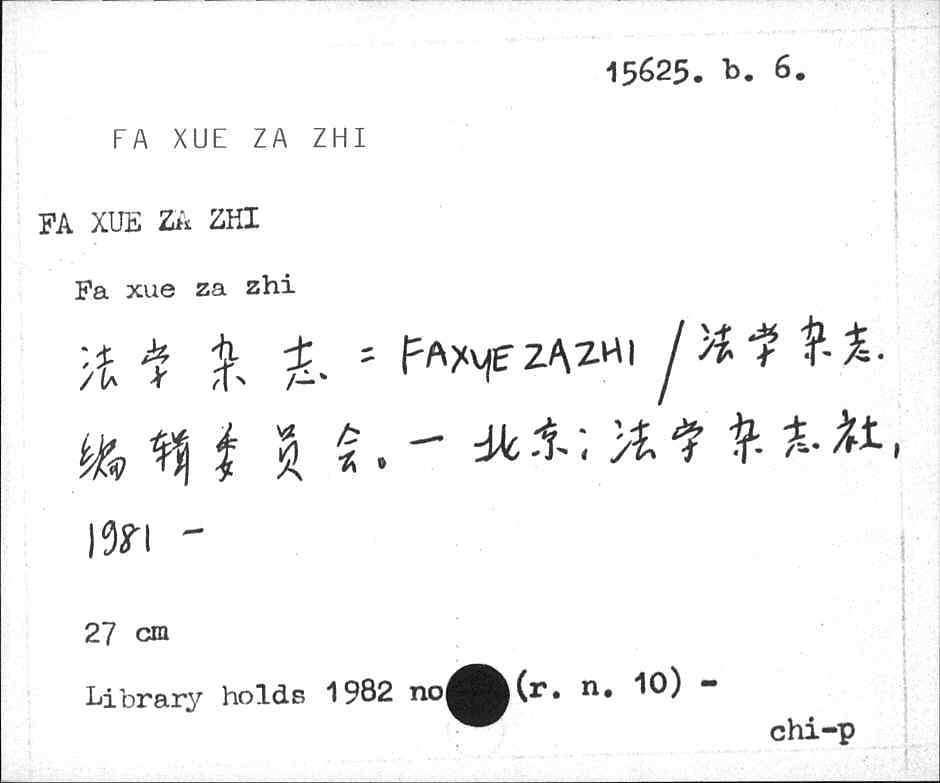 15625. b. 6.
FA XUE ZA ZHI
FA XUE ZA ZHI
Fa xue za zhi
法学杂志. = FAXUE ZAZHI / 法学杂志.
编辑委员会。— 北京; 法学杂志社,
1981 -
27 cm
Library holds 1982 no (r. n. 10) -
chi-p